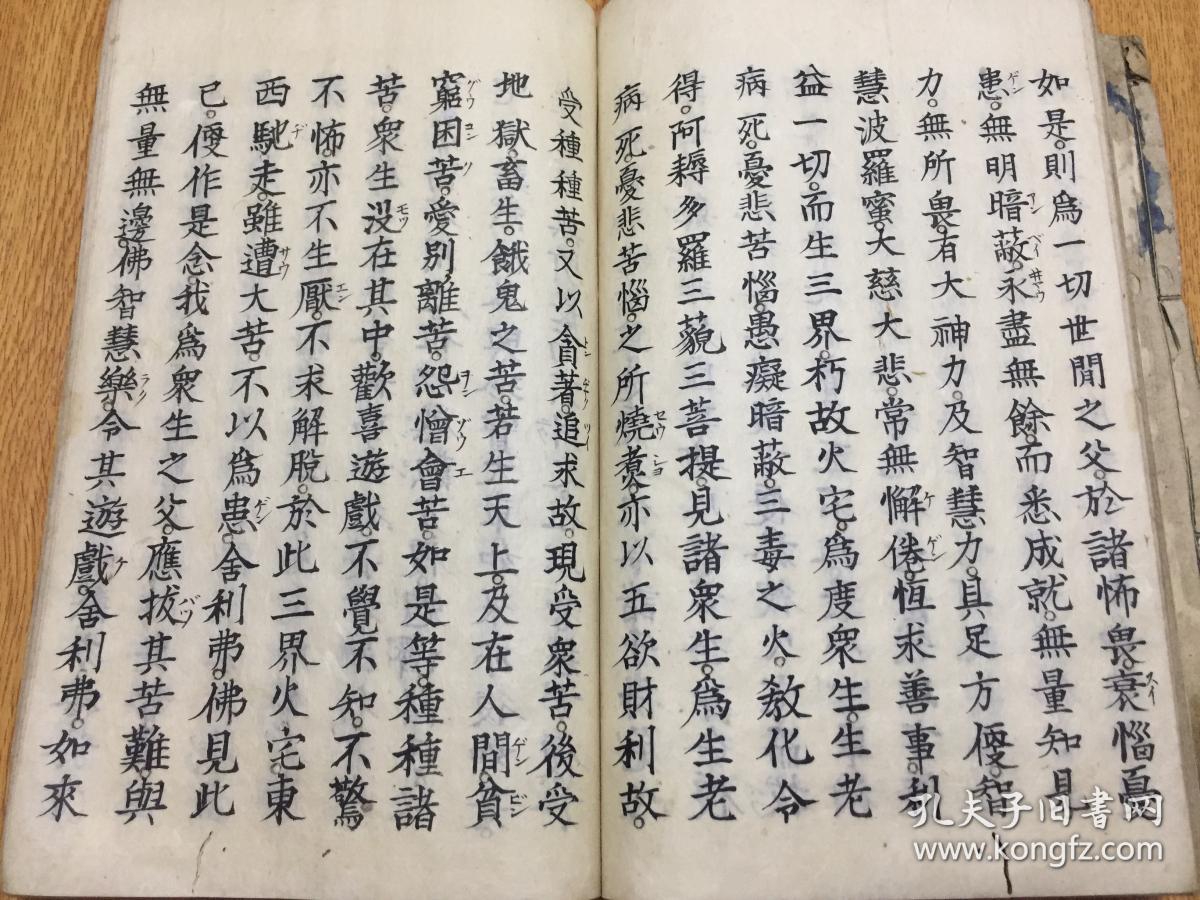 如是。則為一切世間之父。於諸怖畏。衰惱憂
患。無明暗蔽。永盡無餘。而悉成就。無量知見
力。無所畏。有大神力。及智慧力。具足方便。智
慧波羅蜜。大慈大悲。常無懈倦。恒求善事。利
益一切。而生三界。朽故火宅。為度衆生。生老
病死。憂悲苦惱。愚癡暗蔽。三毒之火。教化令
得。阿耨多羅三藐三菩提。見諸衆生。為生老
病死。憂悲苦惱。之所燒煑。亦以五欲財利故。
受種種苦。又以貪著。追求故。現受衆苦。後受
地獄。畜生。餓鬼之苦。若生天上。及在人間。貧
窮困苦。愛別離苦。怨憎會苦。如是等。種種諸
苦。衆生没在其中。歡喜遊戲。不覺不知。不驚
不怖。亦不生厭。不求解脫。於此三界火宅。東
西馳走。雖遭大苦。不以為患。舍利弗。佛見此
已。便作是念。我為衆生之父。應拔其苦難。與
無量無邊。佛智慧樂。令其遊戲。舍利弗。如來
孔夫子旧书网
www.kongfz.com